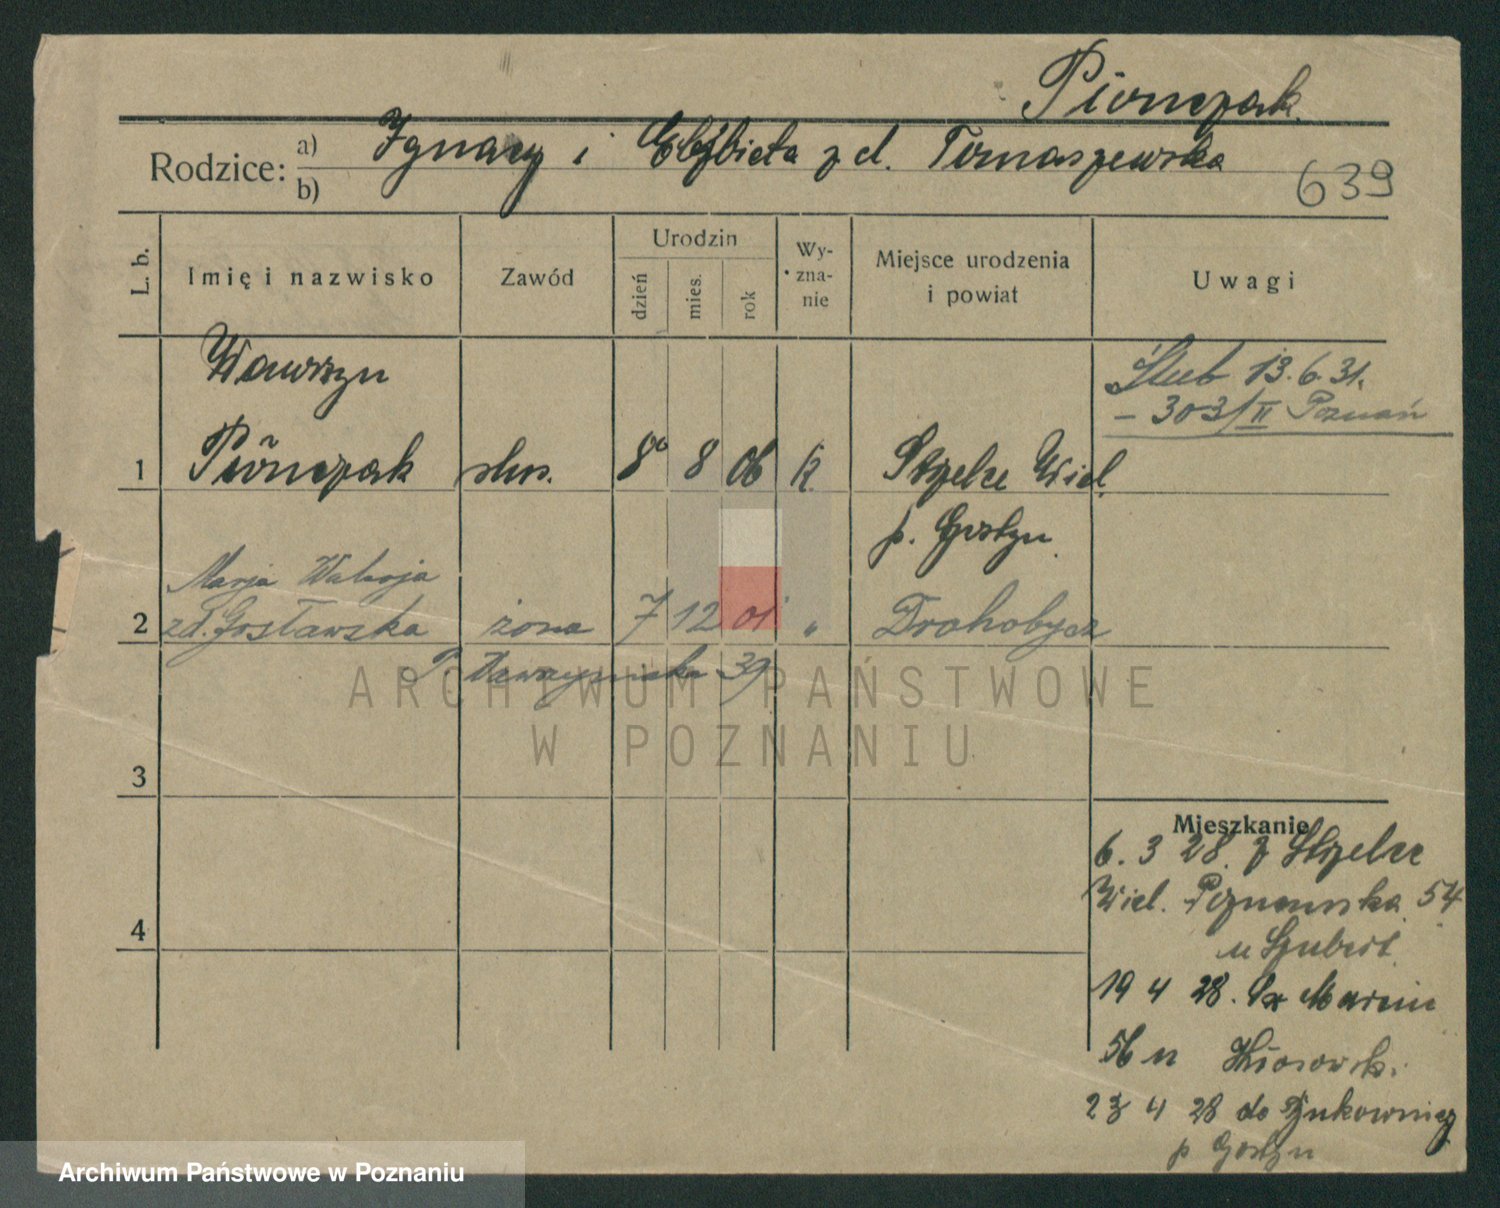 Piõnczak.
Rodzice: a) Ignacy i Elżbieta z d. Tomaszewska
b)
639
L. b. Imię i nazwisko Zawód Urodzin dzień mies. rok Wy-zna-nie Miejsce urodzenia i powiat Uwagi
Wawrzyn
Ślub 13.6.31.
– 303/II Poznań
1 Piõnczak 8 8 06 k Strzelce Wiel.
p. Gostyn
Marja
2 zd. Gosławska żona 7 12 01 " Drohobycz
39
3
4
Mieszkanie
6. 3 28. z Strzelce
Wiel. Poznańska 54
u Szubert
19 4 28. Marcin
56 u
23 4 28 do
p Gostyn
ARCHIWUM PAŃSTWOWE
W POZNANIU
Archiwum Państwowe w Poznaniu